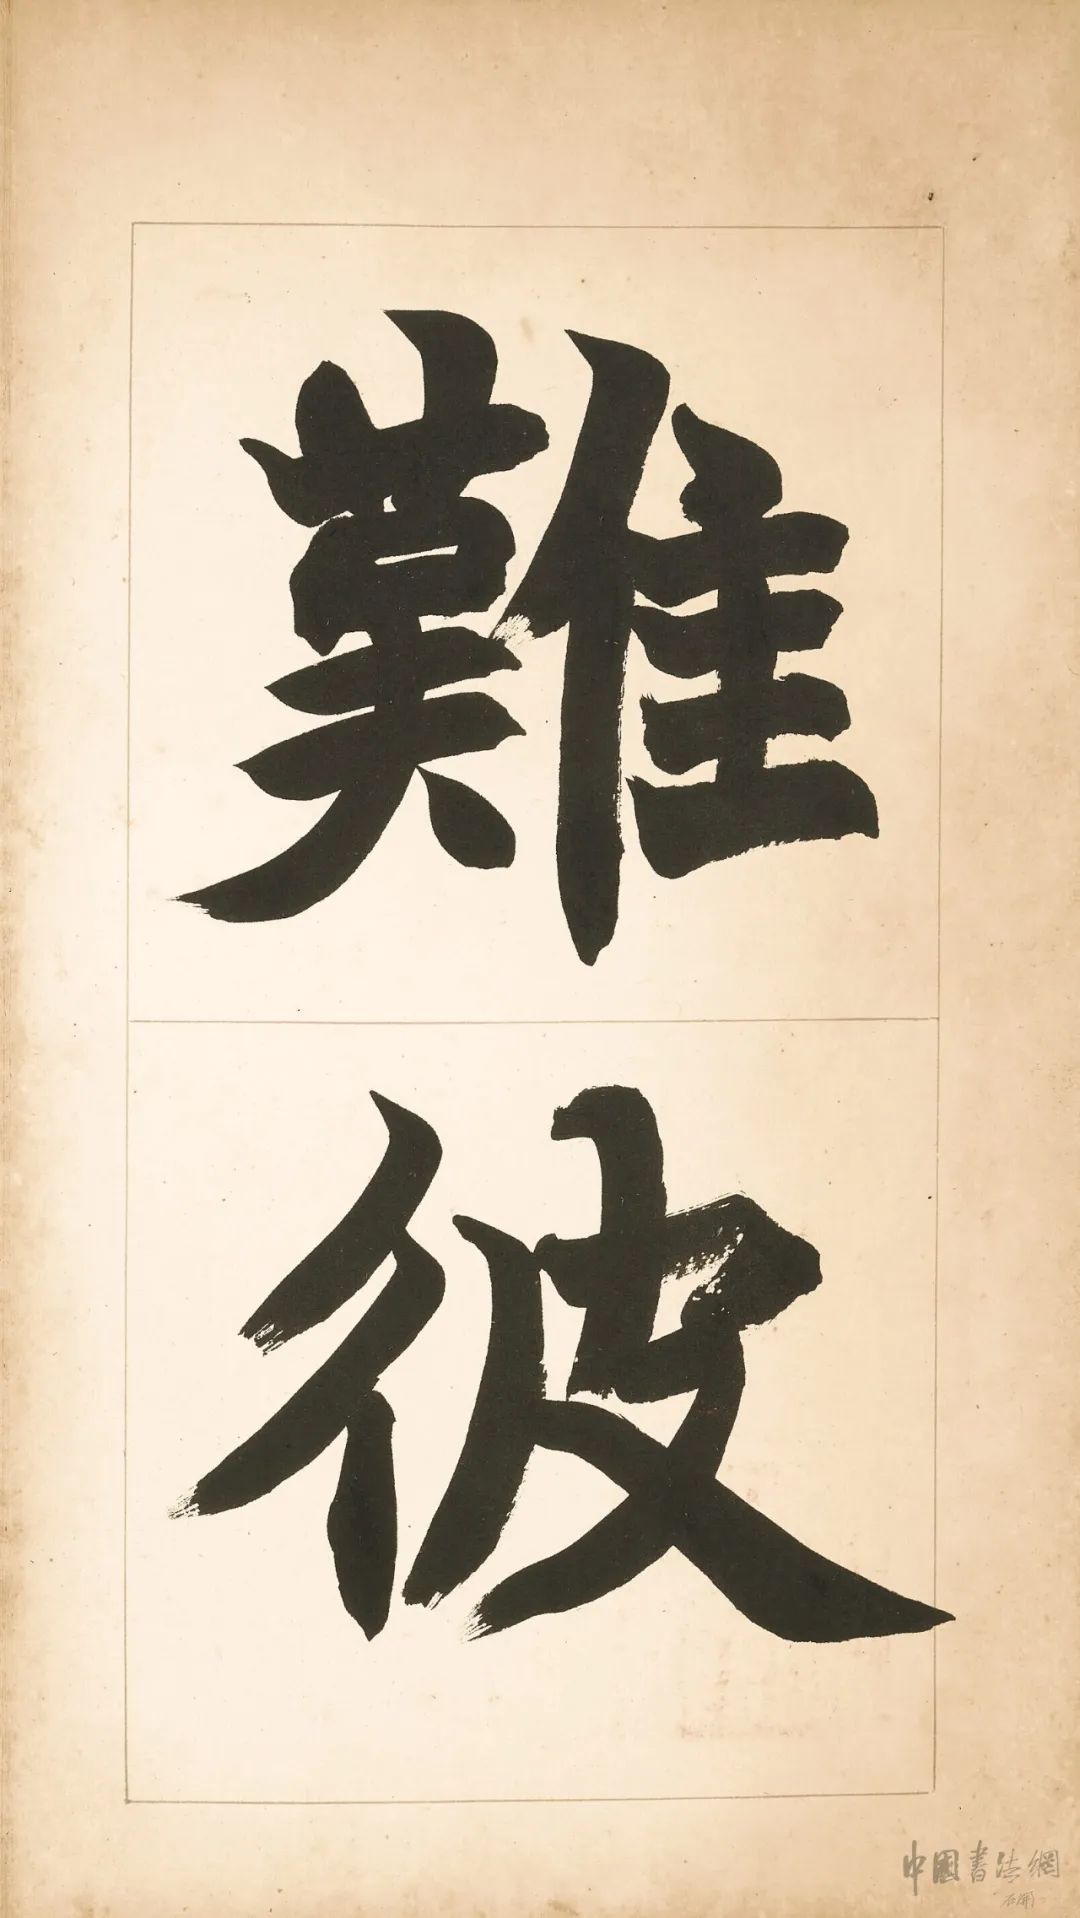 難
彼
中國書法網